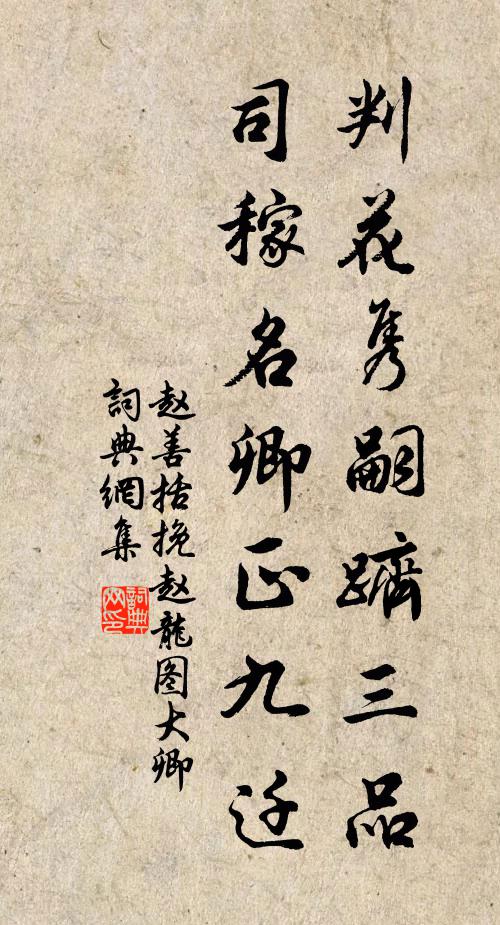 判花隽嗣躋三品
司稼名卿正九迁
赵善括挽赵龍图大卿
詞典網集
詞典网印